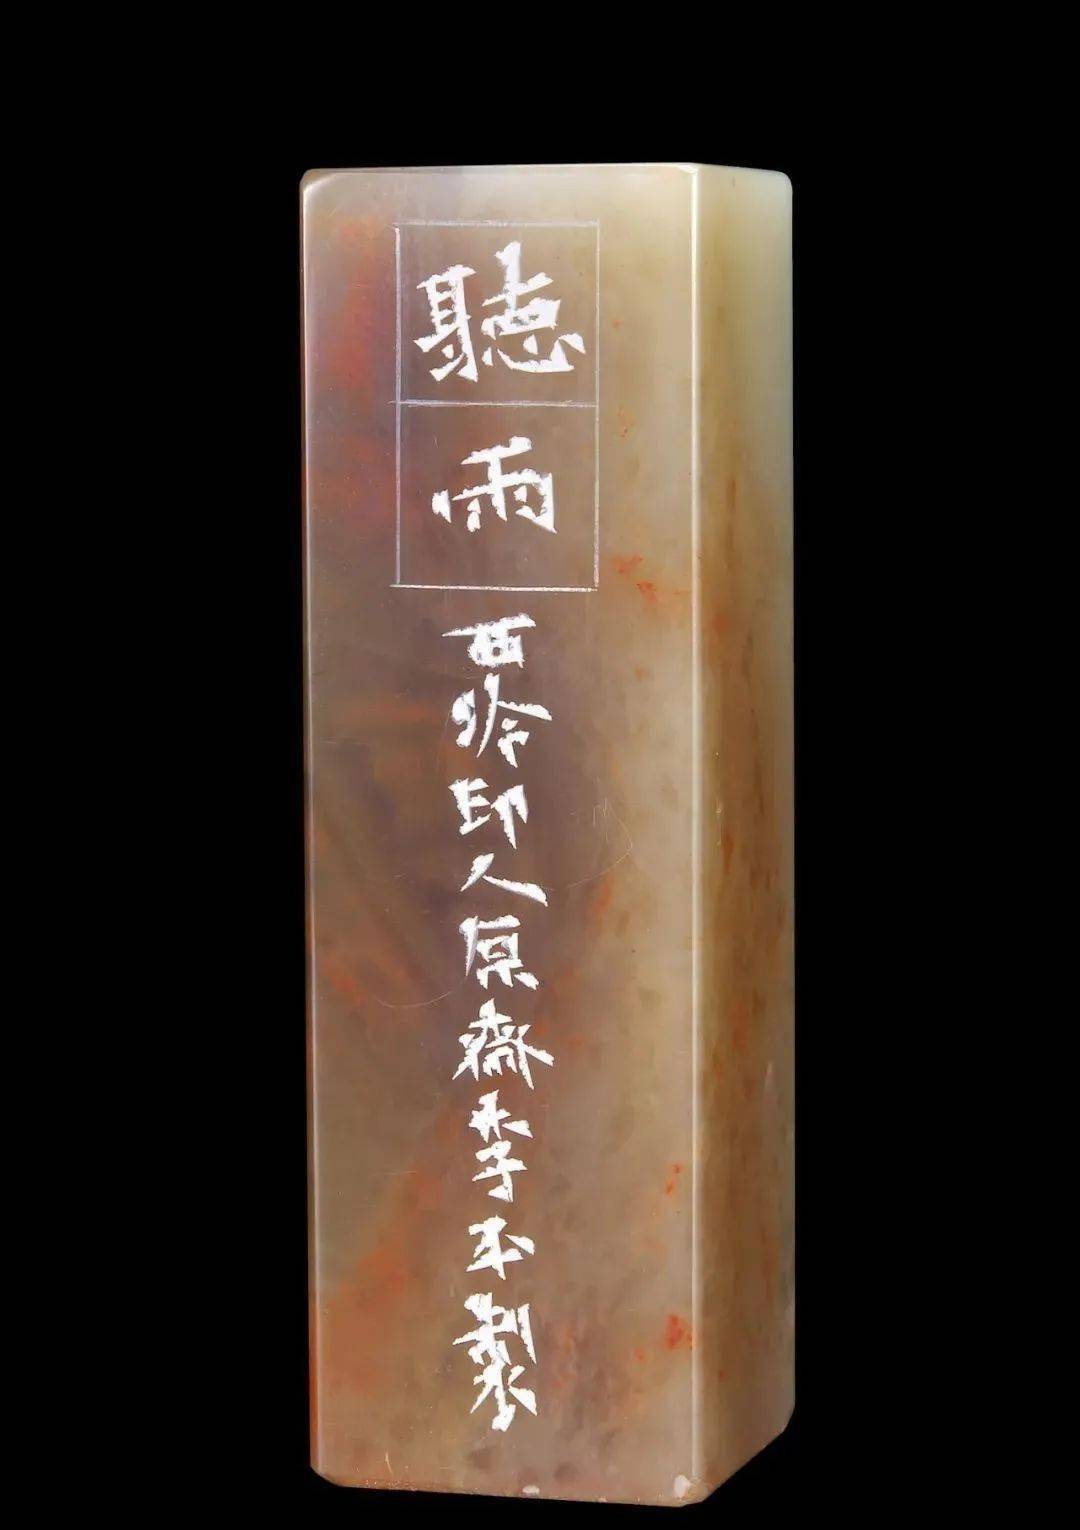 聽雨
西泠印人原齋李平製